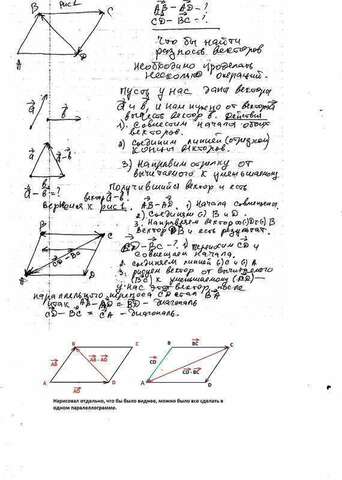 B рис1 C
A D
AB - AD - ?
CD - BC = ?
Что бы найти
разность векторов
необходимо проделать
несколько операций.
Пусть у нас даны вектора
a и b, и нам нужно от вектора
вычесть вектор b. Действия
1). Совместим начала обоих
векторов.
2) Соединим линией (отрезком)
концы векторов.
3) Направим стрелку от
вычитаемого к уменьшаемому
a b
a - b
a - b = ?
Получившийся вектор и есть
вектор a-b.
Вернёмся к рис1. AB - AD. 1) Начала совмещены.
2) Соединяем B и D.
3. Направляем вектор
вектор DB и есть результат.
B C
A D
CD - BC
- BC - ? 1) переносим CD и
совмещаем начала.
2. соединяем линией
3) рисуем вектор от вычитаемого
(BC) к уменьшаемому
у нас этот вектор после
параллельного переноса CD стал BA
Итак AB - AD = - диагональ
CD - BC = CA - диагональ.
B C
AB AB - AD
A AD D
B BC C
CD CD - BC
A D
Нарисовал отдельно, что бы было виднее, можно было все сделать в
одном параллелограмме.